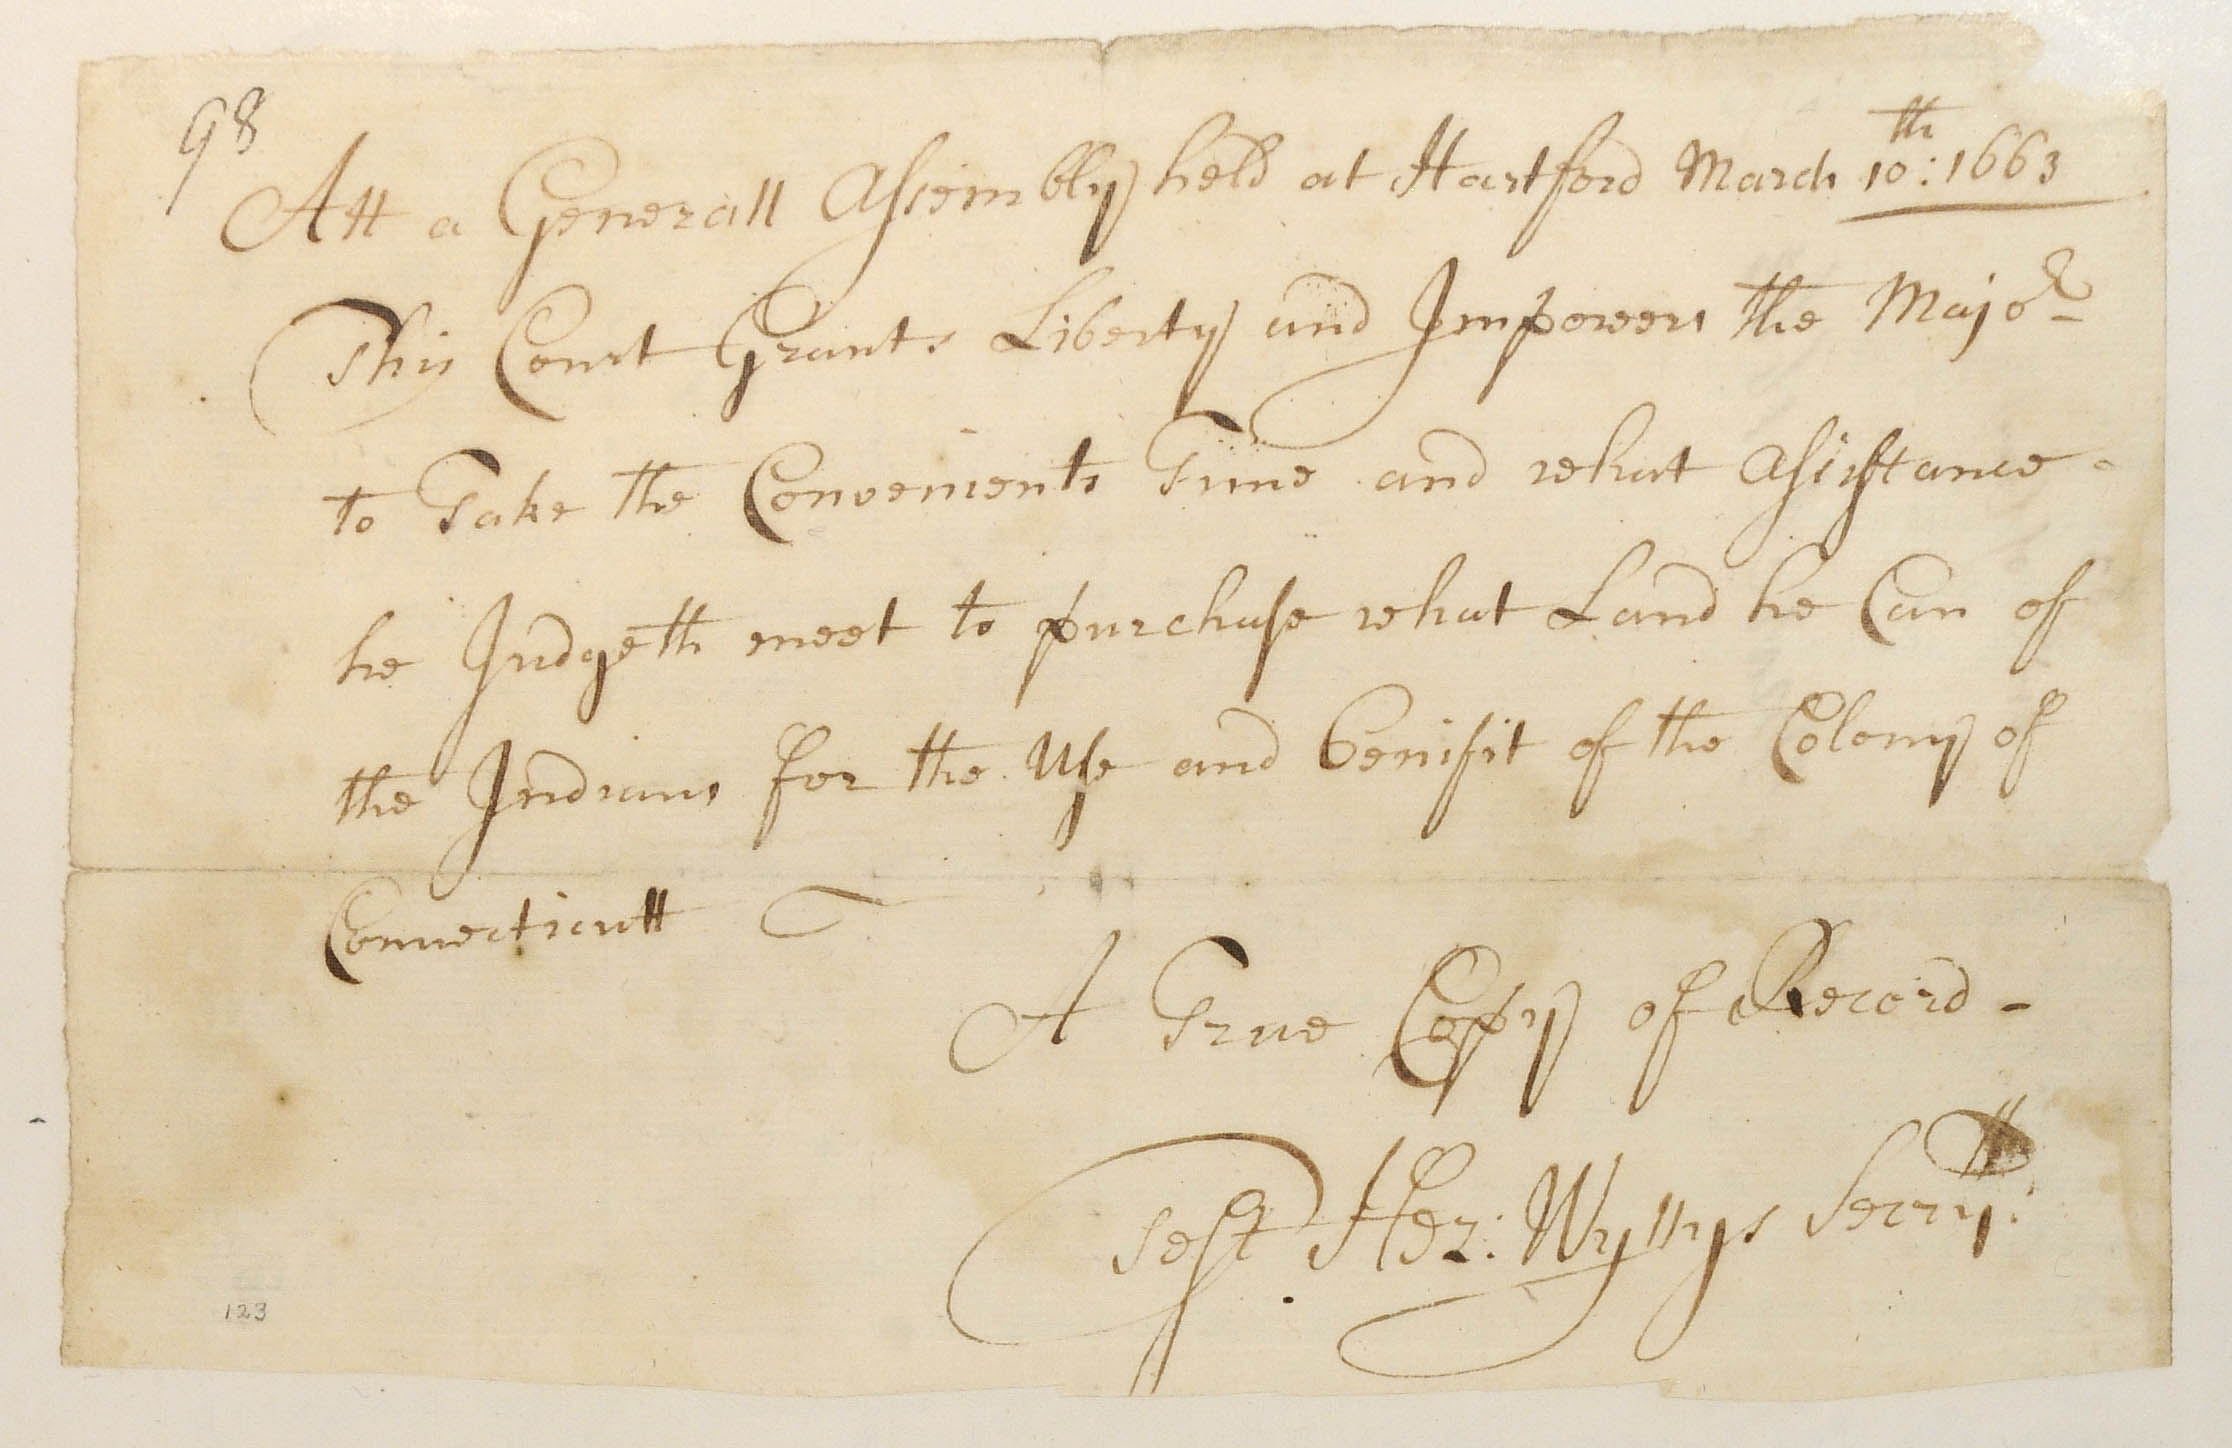 98
Att a Generall Assembly held at Hartford March 10th: 1663
This Court Grants Liberty and Impowers the Major
to Take the Convenients Time and what Assistance
he Judgeth meet to purchase what Land he Can of
the Indians for the Use and benifit of the Colony of
Connecticutt
A True Copy of Record -
Test Hez: Wyllys Secrytt:
123